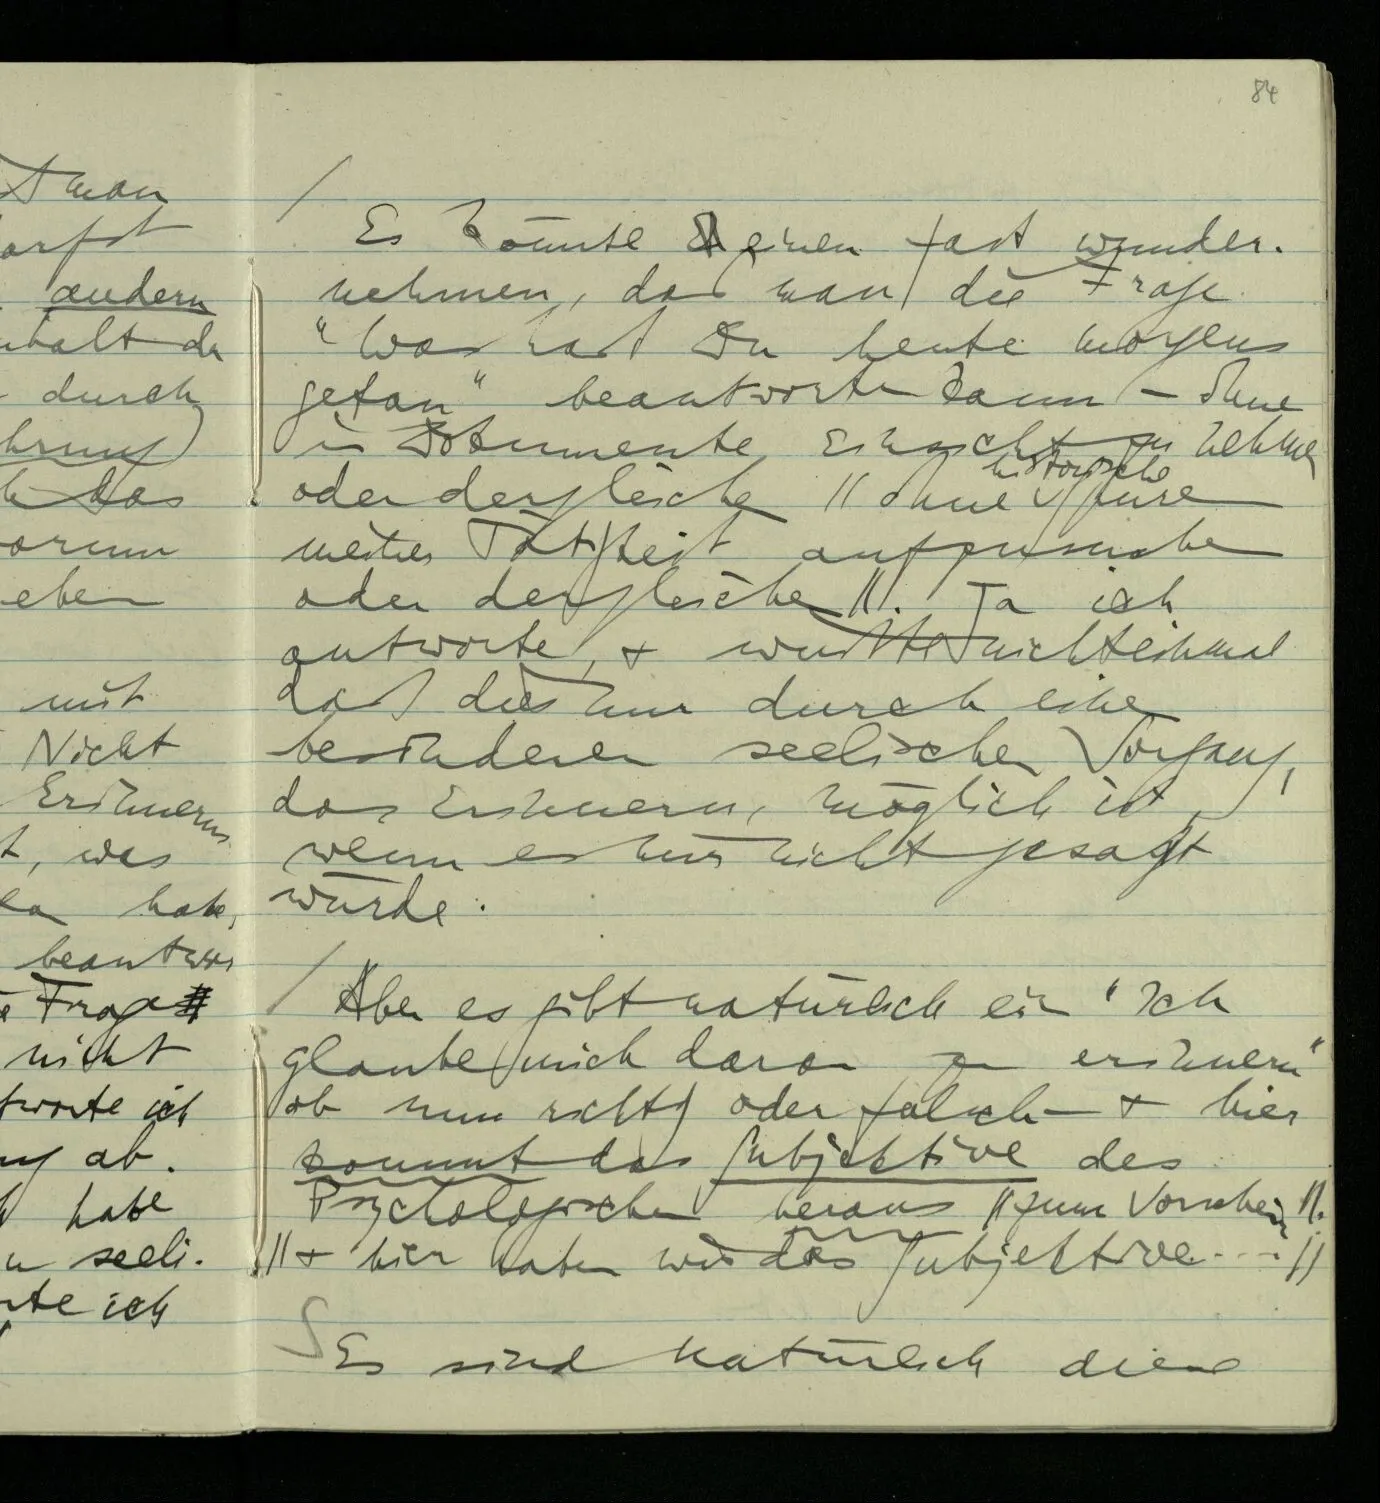 84
t man
arfst
andern
nhalt der
durch
hrung)
h das
orum
eben
mit
Nicht
Erinnerns
t, was
habe,
beantwor
Frage
nicht
tworte ich
ng ab.
habe
n seeli-
rte ich
/
Es könnte einen fast wunder-
nehmen, daß man die Frage
"Was hast Du heute morgens
getan" beantworten kann – ohne
in Dokumente Einsicht zu nehmen
historische
oder dergleichen // ohne Spuren
meiner Tätigkeit aufzusuchen
oder dergleichen //. Ja ich
antworte, & wußte nicht einmal
daß dies nur durch einen
besonderen seelischen Vorgang,
das Erinnern, möglich ist,
wenn es mir nicht gesagt
würde.
/
Aber es gibt natürlich ein "Ich
glaube mich daran zu erinnern"
ob nun richtig oder falsch – & hier
kommt das Subjektive des
Psychologischen heraus // zum Vorschein //.
// & hier haben wir das Subjektive ... //
S
Es sind natürlich diese